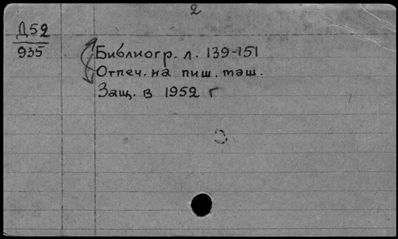 2
Д52
935
Библиогр. л. 139-151
Отпеч. на пиш. маш.
Защ. в 1952 г